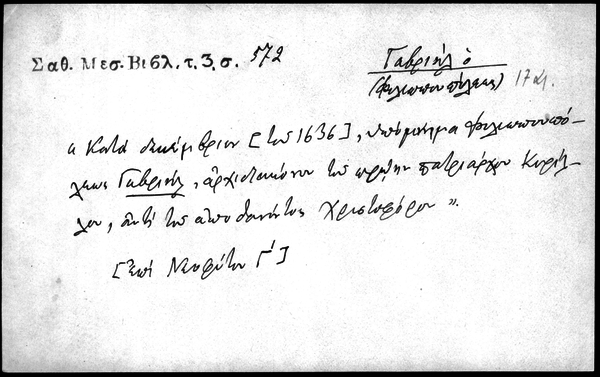 Σαθ. Μεσ. Βιβλ. τ. 3, σ. 572
Γαβριήλ ὁ
(Φιλιππουπόλεως) 17 αἰ.
« Κατὰ Δεκέμβριον [τοῦ 1636], ὑπόμνημα Φιλιππουπό-
λεως Γαβριήλ, ἀρχιδιακόνου τοῦ πρώην πατριάρχου Κυρίλ-
λου, ἀντὶ τοῦ ἀποθανόντος Χριστοφόρου ».
[Ἐπὶ Νεοφύτου Γ′]